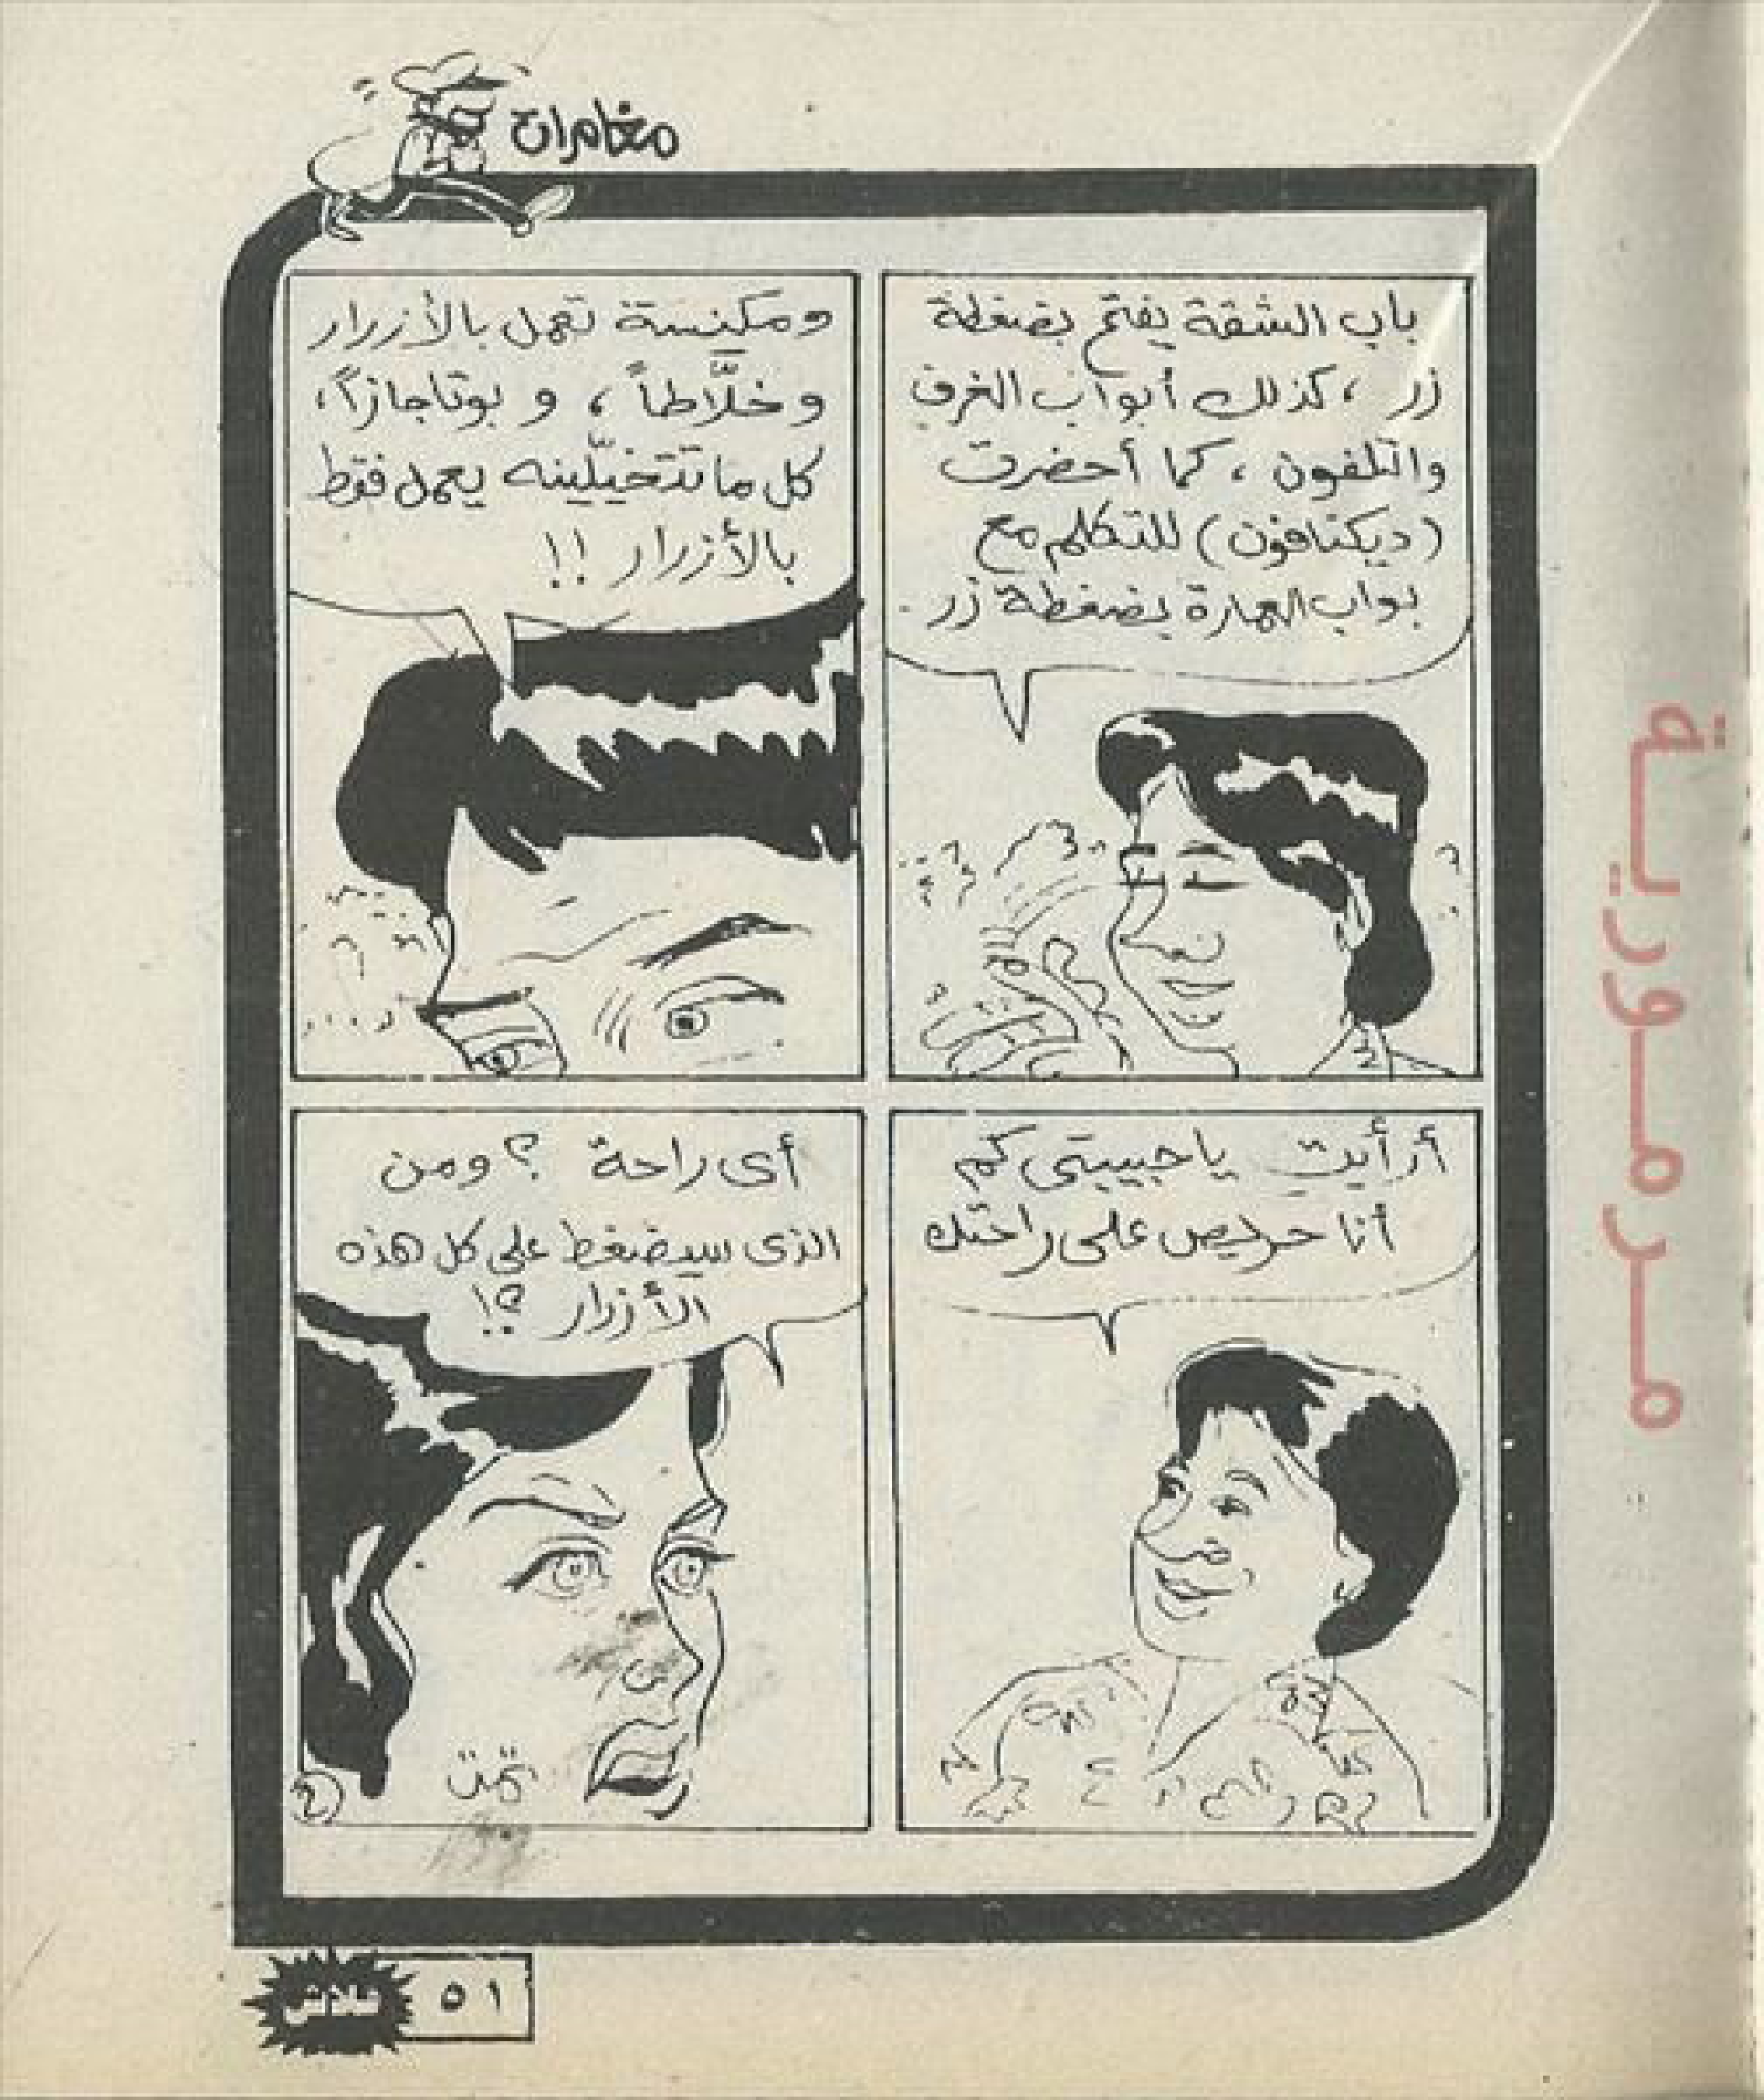 مغامرات
باب الشقة يفتح بضغطة
زر ، كذلك أبواب الغرف
والتلفون ، كما أحضرت
(ديكتافون) للتكلم مع
بواب العمارة بضغطة زر .
ومكنسة تعمل بالأزرار
وخلَّاطاً ، و بوتاجازاً ،
كل ما تتخيّلينه يعمل فقط
بالأزرار !!
أرأيتِ يا حبيبتى كم
أنا حريص على راحتك
أى راحة ؟ ومن
الذى سيضغط على كل هذه
الأزرار ؟!
تمت
٥١
فلاش
مرمورية